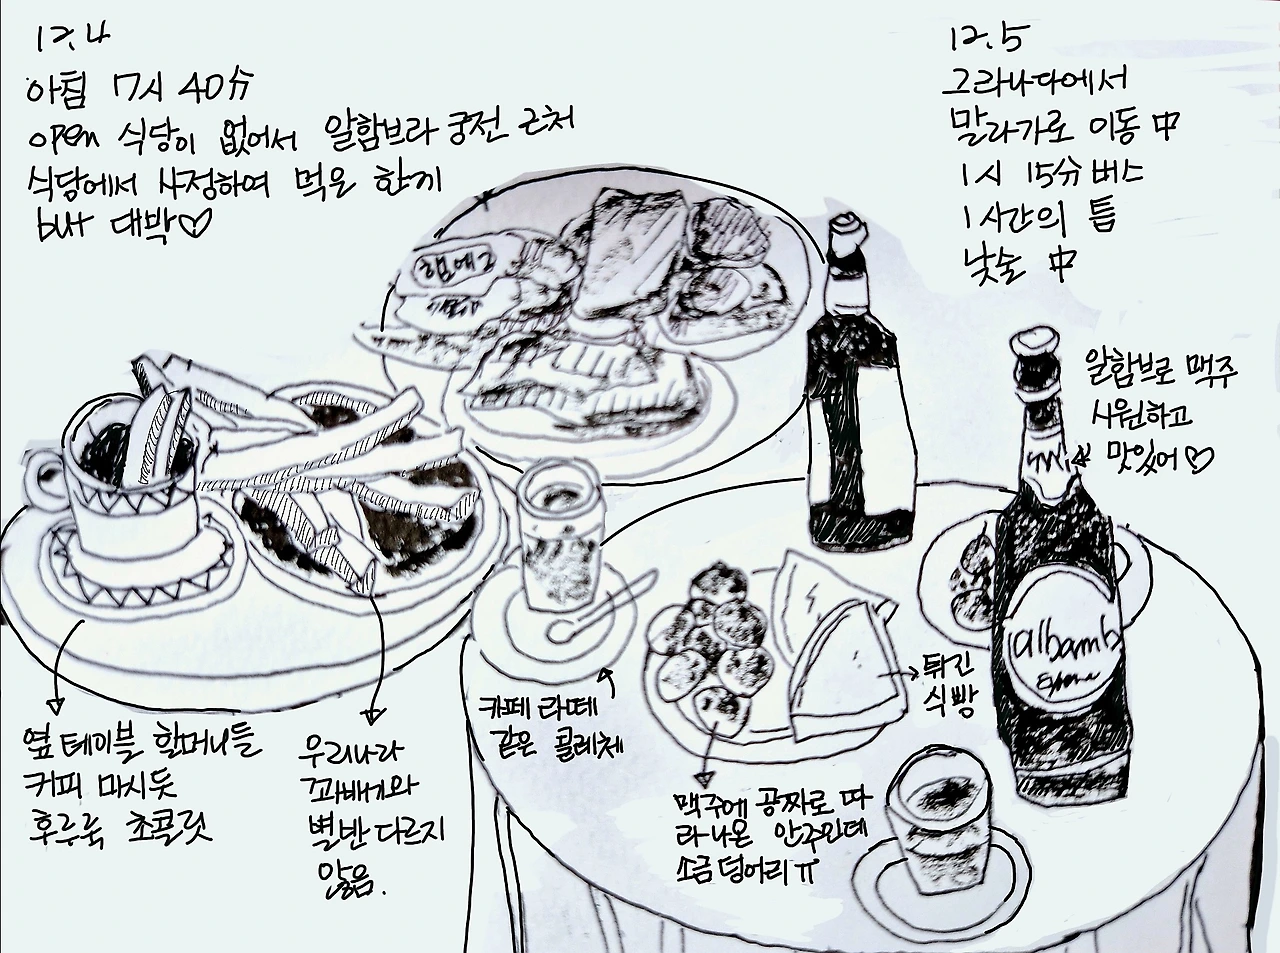 12.4
아침 7시 40分
open 식당이 없어서 알함브라 궁전 근처
식당에서 사정하여 먹은 한끼
but 대박♡
12.5
그라나다에서
말라가로 이동 中
1시 15分 버스
1시간의 틈
낮술 中
햄에그
알함브로 맥주
시원하고
맛있어♡
alhamb
옆 테이블 할머니들
커피 마시듯
후루룩 초콜릿
우리나라
꽈배기와
별반 다르지
않음.
카페 라떼
같은 꼴레체
튀긴
식빵
맥주에 공짜로 따
라 나온 안주인데
소금 덩어리 ㅠ